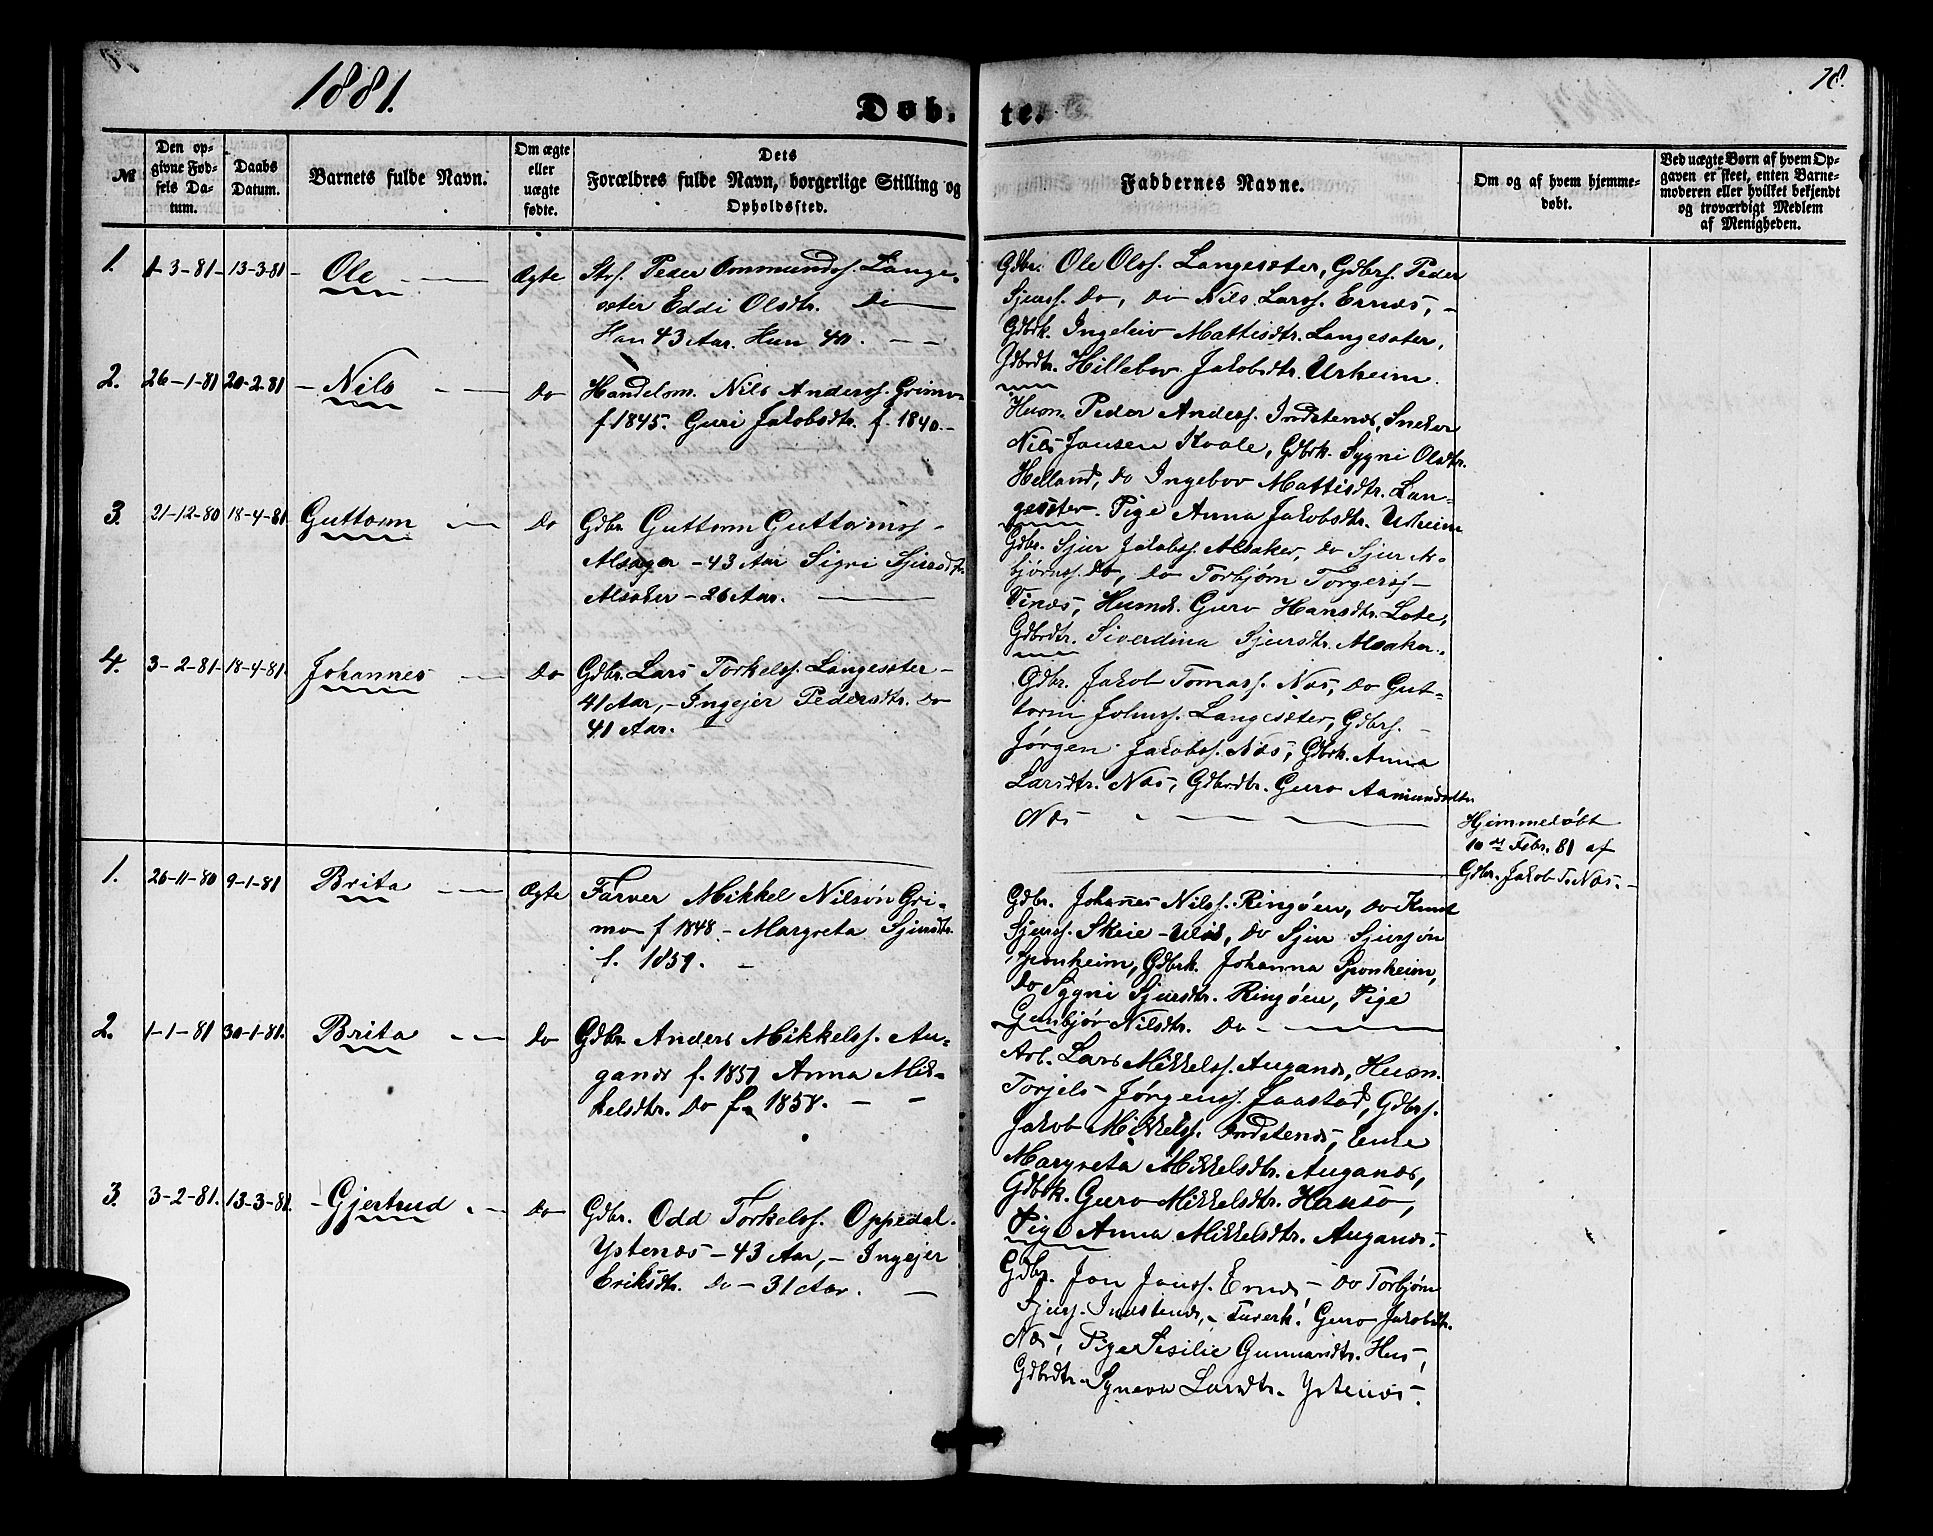 1881.
Døb-
te.
78.
№
Den op-
givne Fød-
sels Da-
tum.
Daabs
Datum.
Barnets fulde Navn.
Om ægte
eller
uægte
fødte.
Dets
Forældres fulde Navn, borgerlige Stilling og
Opholdssted.
Faddernes Navne.
Om og af hvem hjemme-
døbt.
Ved uægte Børn af hvem Op-
gaven er skeet, enten Barne-
moderen eller hvilket bekjendt
og troværdigt Medlem
af Menigheden.
1. 1-3-81- 13-3-81- Ole Ægte
Peder Ommundss. Lange-
sæter Eddi Olsdtr. Do
Han 43 Aar. Hun 40.
Gdbr. Ole Olss. Langesæter, Gdbrs. Peder
Sjurss. Do, do Nils Larss. Ernæs,
Gdbrk. Ingeleiv Mattisdtr. Langesæter,
Gdbrdtr. Hillebor Jakobsdtr. Urheim.
2. 26-1-81 20-2-81 - Nils Do
Handelsm. Nils Anderss. Grimo
f. 1845. Guri Jakobsdtr. f. 1840.
Husm. Peder Anderss. Indstenæs, Sneker
Nils Jansen Kvale, Gdbrk. Sygni Olsdtr.
Helland, do Ingebor Mattisdtr. Lan-
gesæter. Pige Anna Jakobsdtr. Urheim
3. 21-12-80 18-4-81 Guttorm Do
Gdbr. Guttorm Guttormss.
Alsager - 43 Aar Sigri Sjursdtr.
Alsaker - 26 Aar.
Gdbr. Sjur Jakobss. Alsaker, do Sjur As-
bjørnss. do, do Torbjørn Torgerss.
Vinæs, Husmk. Guro Hansdtr. Lote,
Gdbrdtr. Siverdina Sjursdtr. Alsaker.
4. 3-2-81- 18-4-81. Johannes Do
Gdbr. Lars Torkelss. Langesæter
41 Aar, - Ingejer Pedersdtr. do
41 Aar.
Gdbr. Jakob Tomass. Næs, do Gut-
torm Johnss. Langesæter, Gdbrs.
Jørgen Jakobss. Næs, Gdbrk. Anna
Larsdtr. Næs, Gdbrdtr. Guro Aamundsdtr.
Næs
Hjemmedøbt
10de Febr. 81 af
Gdbr. Jakob T. Næs.
1. 26-11-80 9-1-81 Brita Ægte
Farver Mikkel Nilsøn Gri-
mo f 1848 - Margreta Sjursdtr.
f. 1859.
Gdbr. Johanes Nilss. Ringøen, do Knut
Sjurss. Skeie-Ulvik, do Sjur Sjursøn
Sponheim, Gdbrk. Johanna Sponheim,
do Sygni Sjursdtr. Ringøen, Pige
Gunbjør Nilsdtr. Do
2. 1-1-81 30-1-81. Brita Do
Gdbr. Anders Mikkelss. Au-
ganæs f. 1851 Anna Mik-
kelsdtr. Do f. 1858.
Arb. Lars Mikkelss. Auganæs, Husm.
Torjels Jørgenss. Jaastad, Gdbrs.
Jakob Mikkelss. Indstenæs, Enke
Margreta Mikkelsdtr. Auganæs,
Gdbrk. Guro Mikkelsdtr. Hauso,
Pige Anna Mikkelsdtr. Auganæs.
3. 3-2-81. 13-3-81. - Gjertrud Do
Gdbr. Odd Torkelss. Oppedal.
Ystenæs - 43 Aar, - Ingejer
Eriksdtr. Do - 31 Aar.
Gdbr. Jon Jonss. Ernæs, do Torbjørn
Sjurss. Indstenæs, Guro Jakobsdtr.
Næs, Pige Sesilie Gunnarsdtr. Hus,
Gdbrdtr. Syneva Larsdtr. Ystenæs.